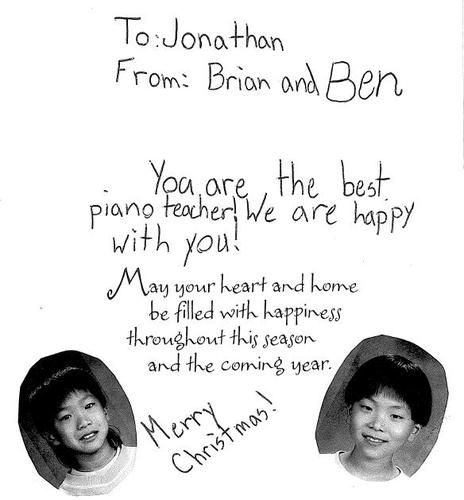 To: Jonathan
From: Brian and Ben
You are the best
piano teacher! We are happy
with you!
May your heart and home
be filled with happiness
throughout this season
and the coming year.
Merry
Christmas!